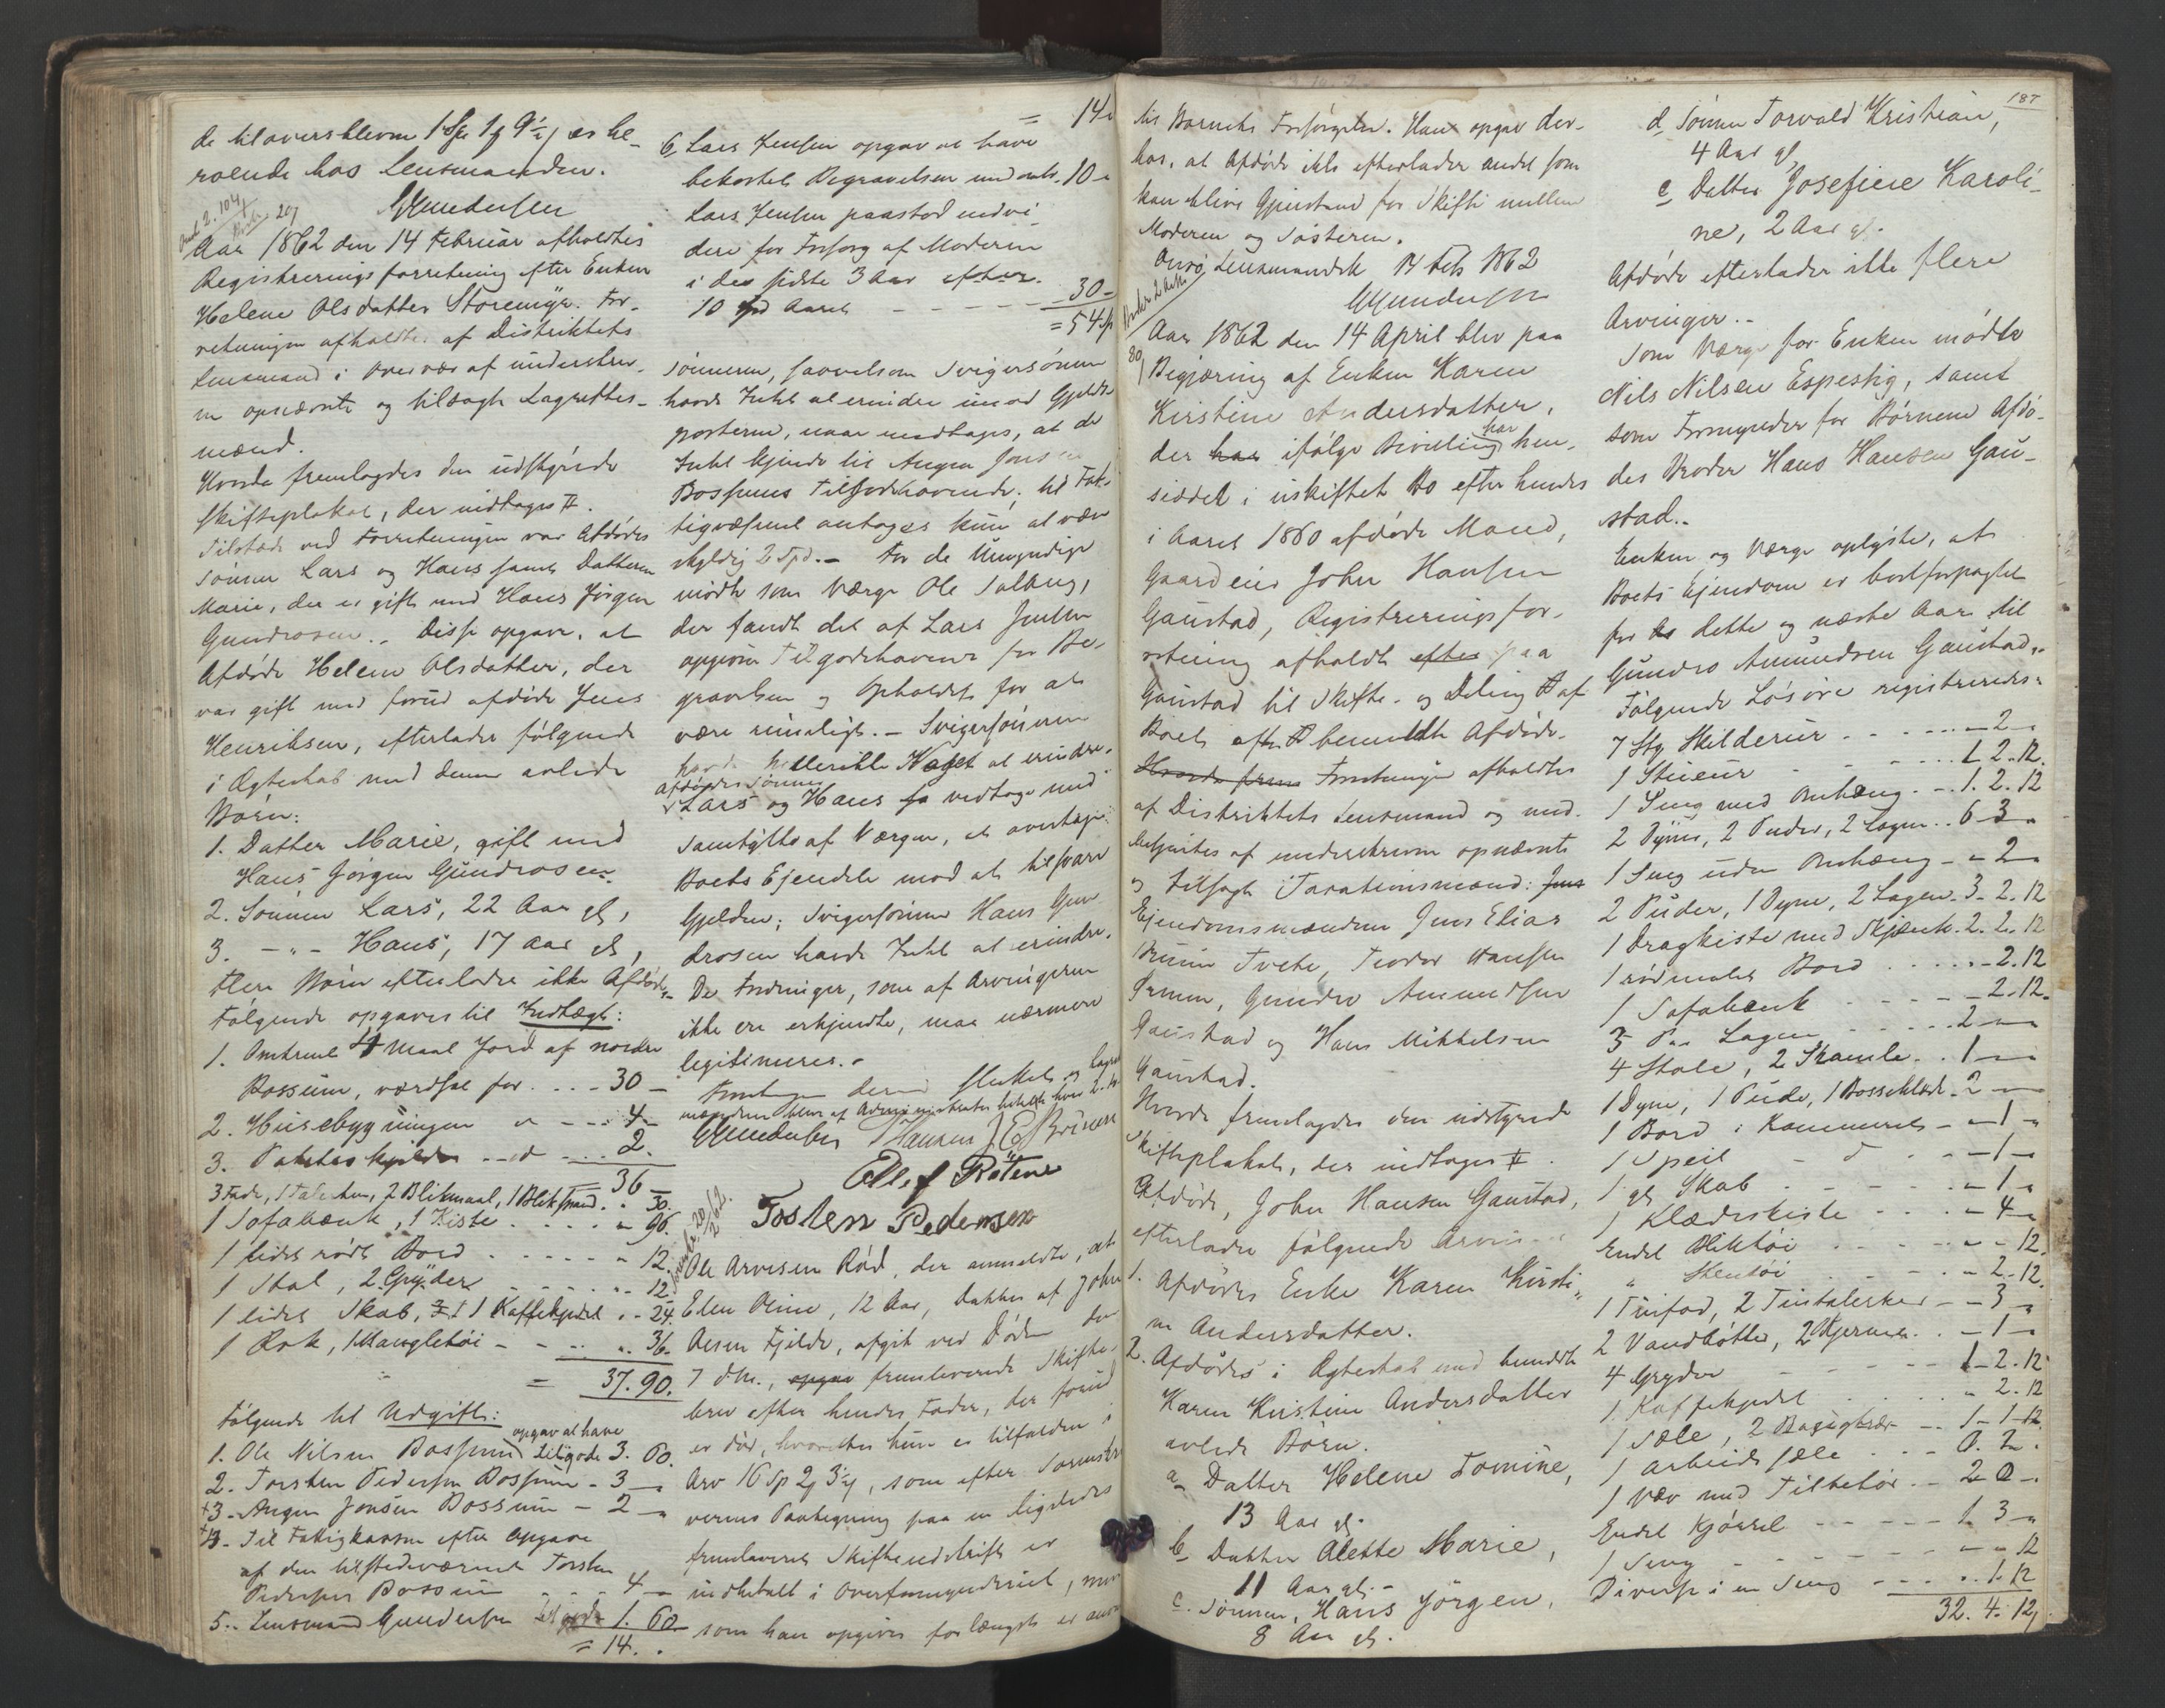 de tiloversblevne 1 Sp 1 9½ ß er be-
roende hos Lensmanden.
GGundersen
Aar 1862 den 14 Februar afholdtes
Registreringsforretning efter Enken
Helene Olsdatter Storemyr. For-
retningen afholdtes af Distriktets
Lensmand i Overvær af underskrev-
ne opnævnte og tilsagte Lagrettes-
mænd.
Hvorda fremlagdes den udstyrede
Skifteplakat, der indtages #.
Tilstede ved Forretningen var Afdødes
Sønner Lars og Hans samt Datteren
Marie, der er gift med Hans Jørgen
Gundrosen.. Disse opgave, at
Afdøde Helene Olsdatter, der
var gift med forud afdøde Jens
Henriksen, efterlader følgende
i Ægteskab med denne avlede
Børn:
1. Datter Marie, gift med
Hans Jørgen Gundrosen.
2. Sønnen Lars, 22 Aar gl,
3. -"- Hans, 17 aar gl,
Flere Børn efterlader ikke Afdøde..
Følgende opgaves til Indtægt:
1. Omtrent 4 Maal Jord af nordre
Bossum, værdsat for . . . 30 -
2. Husebygningen " - - - 4 -
3. - - - 2.
36 -
3 Fade, 1 Talerken, 2 Blikmaal, 1 Blikspand . . 30.
1 Sofabænk, 1 Kiste . . . . " 96.
1 lidet rødt Bord . . . . . " 12.
1 Stol, 2 Gryder . . . . 12.
1 lidet Skab, 1 Kaffekjedel . . 24.
1 Rok, 1 Mangletøi - - . . . 36.
= 37. 90.
Følgende til Udgift:
opgav at have
1. Ole Nilsen Bossum tilgode 3. 60.
2. Torsten Pedersen Bossum - 3 -
+3. Augen Jonsen Bossum - 2 -
+4. Til Fattigkassen efter Opgave
af den tilstedeværende Torsten
Pedersen Bossum - - - 4 -
5.. Lensmand Gundersen 1. 60
= 14. .
= 14.
6, Lars Jensen opgav at have
bekostet Begravelsen med omtr. 10 -
Lars Jensen paastod endvi-
dere for Forsorg af Moderen
i de sidste 3 Aar efter.
10 Spd Aaret - - - - 30 -
= 54 Sp
Sønnerne, saavelsom Svigersønnen
havde Intet at erindre imod Gjelds-
posterne, naar undtages, at de
Intet kjende til Augen Jonsen
Bossums Tilgodehavende; til Fat-
tigvæsenet antages kun at være
skyldig 2 Spd. - For de Umyndige
mødte som Værge Ole Solberg,
der fandt det af Lars Jensen
opgivne Tilgodehavende for Be-
gravelsen og Opholdet for at
være rimeligt. - Svigersønnen
havde hellerikke Noget at erindre.
afdødes Sønner
Lars og Hans vedtoge med
Samtykke af Værgen, at overtage
Boets Ejendele mod at tilsvare
Gjelden; Svigersønnen Hans Gun-
drosen havde Intet at erindre.
De Fordringer, som af Arvingerne
ikke ere erkjendte, maa nærmere
legitimeres. -
Forretningen dermed sluttet og Lagrettes-
mændene
GGundersen THansen J. E. Brunen
Ellef Røtene
Torsten Pedersen
Ole Arvesen Rød, der anmeldte, at
Elen Oline, 12 Aar, Datter af John
Olsen Fjelde, afgik ved Døden den
7 dM., opgav fremleverede Skifte-
brev efter hendes Fader, der forud
er død, hvorefter hun er tilfalden i
Arv 16 Sp 2 3 ß, som efter Sorenskri-
verens Paategning paa en ligeledes
fremleveret Skifteudskrift er
indbetalt i Overformynderiet, men
som han opgiver forlængst er anv
187
til Barnets Forsørgelse. Han opgav der-
hos, at Afdøde ikke efterlader andet som
kan blive Gjenstand for Skifte mellem
Moderen og Søsteren.
Onsø Lensmandsk 14 Feb 1862
GGundersen
Aar 1862 den 14 April blev paa
Begjæring af Enken Karen
Kirstine Andersdatter,
der har ifølge Bevilling har hen-
siddet i uskiftet Bo efter hendes
i Aaret 1860 afdøde Mand,
Gaardeier John Hansen
Gaustad, Registreringsfor-
retning afholdt efter paa
Gaustad til Skifte- og Deling af
Boet efter bemeldte Afdøde.
Hvorda frem Forretningen afholdtes
af Distriktets Lensmand og med-
betjentes af underskrevne opnævnte
og tilsagte Taxationsmænd: Jens
Ejendomsmændene Jens Elias
Brunn Tvete, Teodor Hansen
, Gundro Amundsen
Gaustad og Hans Mikkelsen
Gaustad.
Hvorda fremlagdes den udstyrede
Skifteplakat, der indtages #.
Afdøde, John Hansen Gaustad,
efterlader følgende Arvinger
1. Afdødes Enke Karen Kirsti-
ne Andersdatter.
2. Afdødes i Ægteskab med bemeldte
Karen Kirstine Andersdatter
avlede Børn.
a Datter Helene Tomine,
13 Aar gl.
b Datter Olette Marie,
11 Aar gl. -
c. Sønnen, Hans Jörgen,
8 Aar gl.
d Sønnen Torvald Kristian,
4 Aar gl
e Datter Josefine Karoli-
ne, 2 Aar gl.
Afdøde efterlader ikke flere
Arvinger. -
Som Værge for Enken mødte
Nils Nilsen Espestig, samt
som Formynder for Børnene Afdø-
des Broder Hans Hansen Gau-
stad. -
Enken og Værge oplyste, at
Boets Ejendom er bortforpagtet
for dette og næste Aar til
Gundro Amundsen Gaustad..
Følgende Løsøre registreredes:
7 Stg Skilderier . . . . . - 2 -
1 Stueur - . . . . 1. 2. 12.
1 Seng med Omhæng . - . 1. 2. 12
2 Dyner, 2 Puder, 2 Lagen . . 6 3 -
1 Seng uden Omhæng - - 2 -
2 Puder, 1 Dyne, 2 Lagen . 3 - 2. 12
1 Dragkiste med Skjænk . 2. 2. 12
1 rødmalet Bord . . . . . - 2. 12
1 Sofabænk . . - - - 2. 12.
3 Par Lagen . . . . 2 - -
4 Stole, 2 Skamle . . 1 - -
1 Dyne, 1 Pude, 1 Bosseklæde . 2 -
1 Bord i Kammeret - - 1 -
1 Speil - d - . - 1 -
1 gl Skab . - . . . - 1 -
1 Klædeskiste . . . - 4 -
Endel Bliktøi . . . . - - 12.
" Stentøi . . . - 2. 12.
1 Tinfad, 2 Tintalerker - - 3 -
2 Vandbøtter, 2 Kjerner . . - 1 -
4 Gryder - - - 1 - 2. 12
1 Kaffekjedel . . . . - 2. 12
1 Sæle, 2 - - 1 - 1 - 12
1 Arbeidssæle . . . 0. 2.
1 Væv med Tilbehør . - 2 0 -
Endel Kjørsel - - - - 1. 3 -
1 Seng - - - - - - 12
Diverse i en Seng - - - . . 1. 12
32. 4. 12,